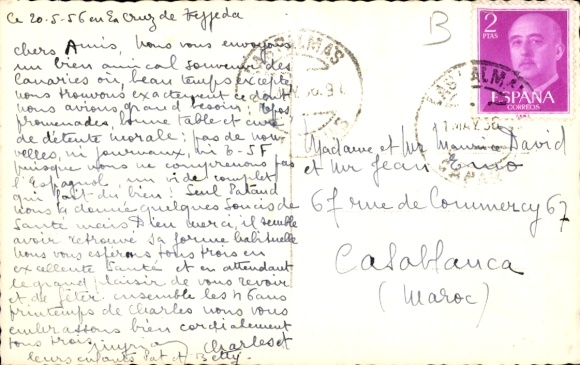 Ce 20.5.56 en la Cruz de Tejjeda
chers Amis, Nous vous envoyons
un bien amical souvenir des
Canaries où, beau temps excepté
nous trouvons exactement ce dont
nous avions grand besoin repos,
promenades, bonne table et cure
de détente morale: pas de nou
velles, ni journaux, ni T.S.F
puisque nous ne comprenons pas
l'Espagnol, un vide complet
qui fait du bien. Seul Pataud
nous a donné quelques soucis de
santé mais Dieu merci, il semble
avoir retrouvé sa forme habituelle
Nous vous espérons tous trois en
excellente santé et en attendant
le grand plaisir de vous revoir
et de fêter ensemble les
printemps de Charles nous vous
embrassons bien cordialement
tous trois. Charles et
leurs enfants Pat et Betty.
B
2
PTAS
ESPAÑA
CORREOS
LAS PALMAS
LAS PALMAS
MAY.56
Madame et Mr Maurice David
et Mr Jean
67 rue de Commercy 67
Casablanca
(Maroc)